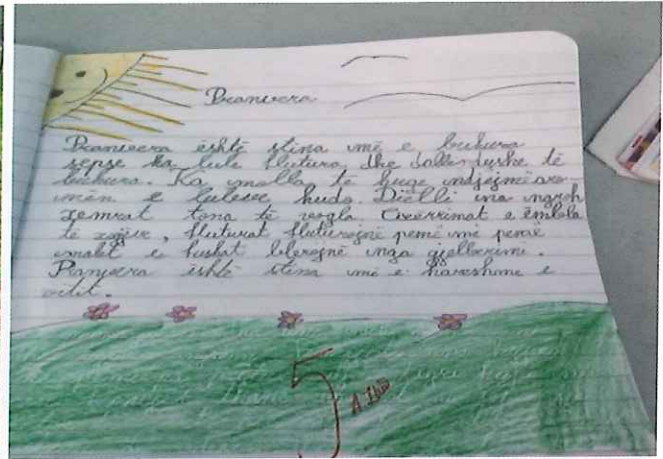 Pranvera
Pranvera është stina më e bukura
sepse ka lule flutura dhe dallëndyshe të
bukura. Ka molla të kuqe ndjejmë aro-
mën e luleve kudo. Dielli na ngroh
zemrat tona të vogla. Cicërrimat e ëmbla
të zogjve, fluturat fluturojnë pemë më pemë
malet e fushat blerojnë nga gjelbërimi.
Pranvera është stina më e hareshme e
vitit.
5